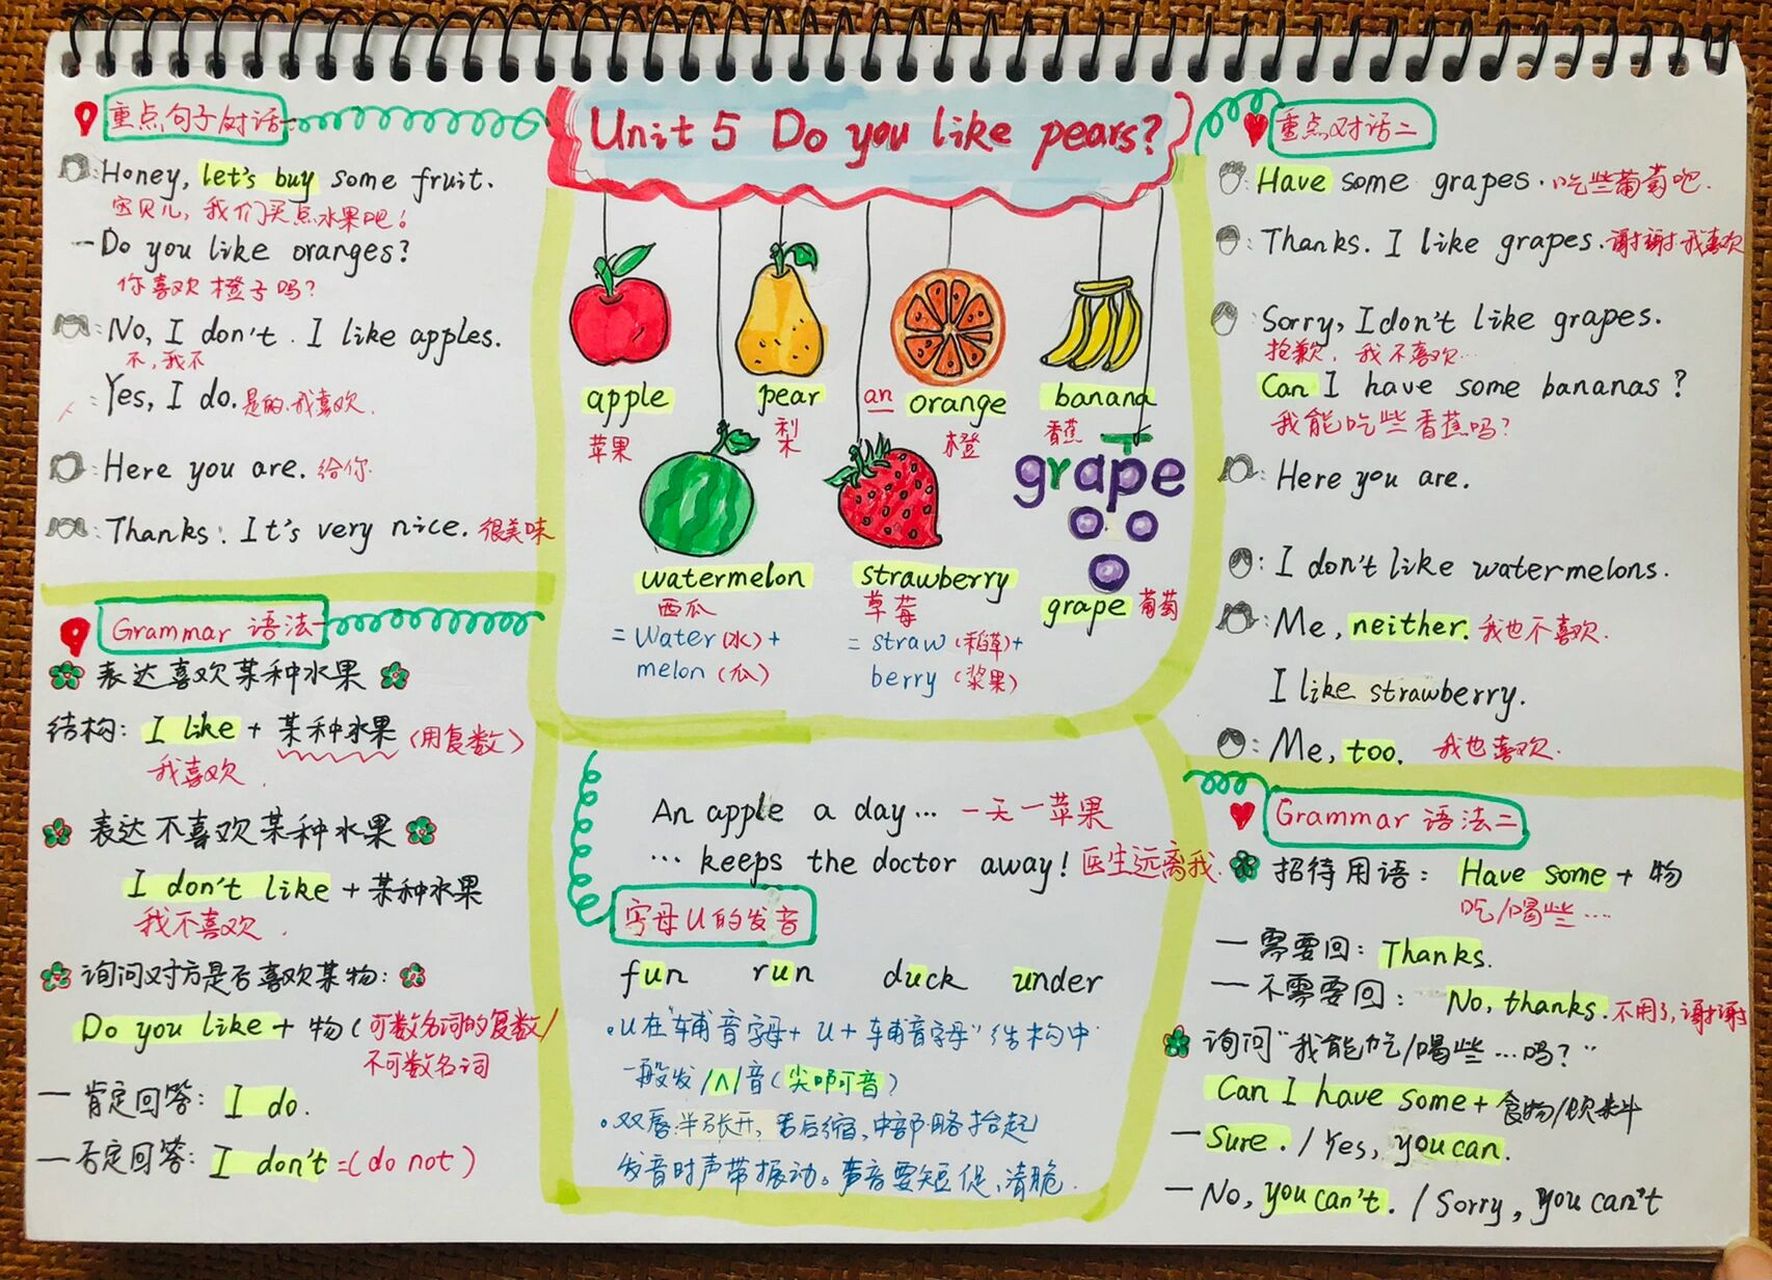 Unit 5 Do you like pears?
重点句子对话一
Honey, let's buy some fruit.
宝贝儿, 我们买点水果吧!
-Do you like oranges?
你喜欢橙子吗?
: No, I don't. I like apples.
不, 我不
: Yes, I do. 是的, 我喜欢.
: Here you are. 给你.
: Thanks! It's very nice. 很美味
Grammar 语法一
表达喜欢某种水果
结构: I like + 某种水果 (用复数)
我喜欢.
表达不喜欢某种水果
I don't like + 某种水果
我不喜欢.
询问对方是否喜欢某物:
Do you like + 物 (可数名词的复数/
不可数名词
— 肯定回答: I do.
— 否定回答: I don't =(do not)
apple
苹果
pear
梨
an orange
橙
banana
香蕉
grape
watermelon
西瓜
= water (水) +
melon (瓜)
strawberry
草莓
= straw (稻草) +
berry (浆果)
grape 葡萄
An apple a day... 一天一苹果
... keeps the doctor away! 医生远离我.
字母U的发音
fun run duck under
•u在"辅音字母+ u + 辅音字母"结构中
一般发/ʌ/音(尖啊音)
•双唇半张开, 舌后缩, 中部略抬起
发音时声带振动。声音要短促、清脆.
重点对话二
: Have some grapes. 吃些葡萄吧.
: Thanks. I like grapes. 谢谢我喜欢
: Sorry, I don't like grapes.
抱歉, 我不喜欢...
Can I have some bananas?
我能吃些香蕉吗?
: Here you are.
: I don't like watermelons.
: Me, neither. 我也不喜欢.
I like strawberry.
: Me, too. 我也喜欢.
Grammar 语法二
招待用语: Have some + 物
吃/喝些...
— 需要回: Thanks.
— 不需要回: No, thanks. 不用了, 谢谢
询问"我能吃/喝些...吗?"
Can I have some + 食物/饮料
— Sure. / Yes, you can.
— No, you can't. / Sorry, you can't